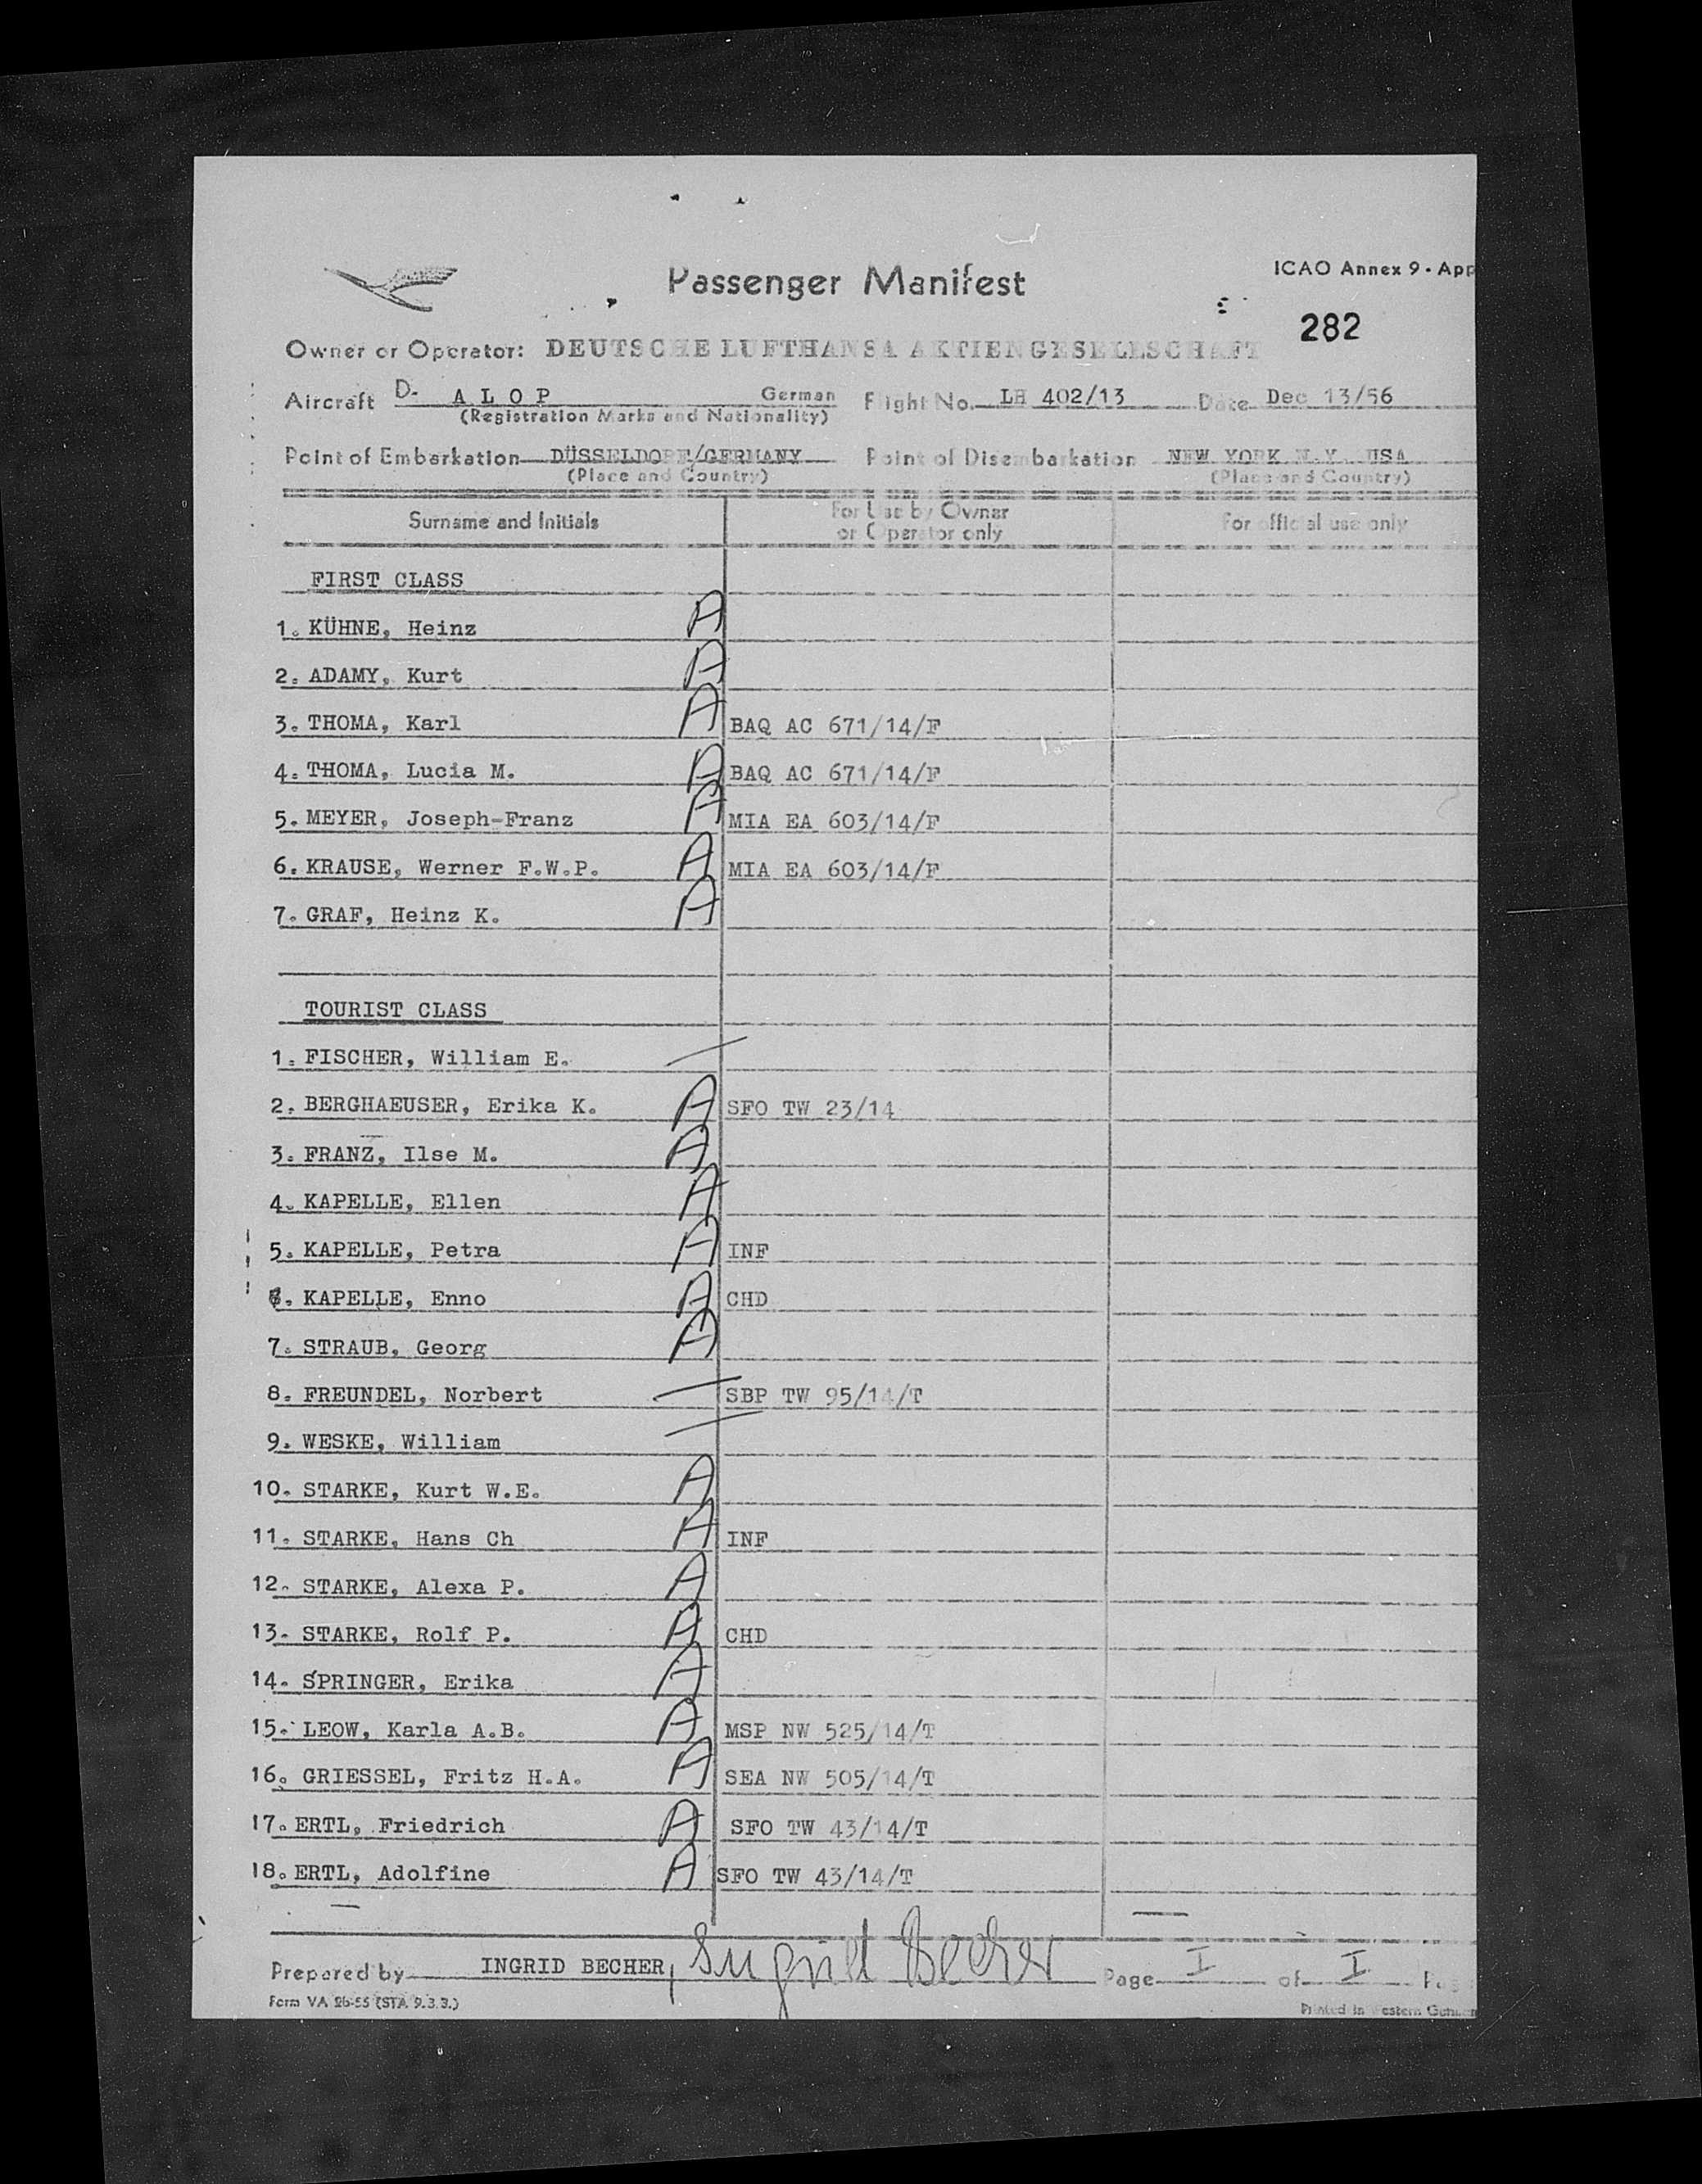 Passenger Manifest
ICAO Annex 9 · App
282
Owner or Operator: DEUTSCHE LUFTHANSA AKTIENGESELLSCHAFT
Aircraft D- A L O P German Flight No. LH 402/13 Date Dec 13/56
(Registration Marks and Nationality)
Point of Embarkation DÜSSELDORF/GERMANY Point of Disembarkation NEW YORK N.Y. USA
(Place and Country) (Place and Country)
Surname and Initials For Use by Owner or Operator only For official use only
FIRST CLASS
1. KÜHNE, Heinz A
2. ADAMY, Kurt A
3. THOMA, Karl A BAQ AC 671/14/F
4. THOMA, Lucia M. A BAQ AC 671/14/F
5. MEYER, Joseph-Franz A MIA EA 603/14/F
6. KRAUSE, Werner F.W.P. A MIA EA 603/14/F
7. GRAF, Heinz K. A
TOURIST CLASS
1. FISCHER, William E.
2. BERGHAEUSER, Erika K. A SFO TW 23/14
3. FRANZ, Ilse M. A
4. KAPELLE, Ellen A
5. KAPELLE, Petra A INF
6. KAPELLE, Enno A CHD
7. STRAUB, Georg A
8. FREUNDEL, Norbert SBP TW 95/14/T
9. WESKE, William
10. STARKE, Kurt W.E. A
11. STARKE, Hans Ch A INF
12. STARKE, Alexa P. A
13. STARKE, Rolf P. A CHD
14. SPRINGER, Erika A
15. LEOW, Karla A.B. A MSP NW 525/14/T
16. GRIESSEL, Fritz H.A. A SEA NW 505/14/T
17. ERTL, Friedrich A SFO TW 43/14/T
18. ERTL, Adolfine A SFO TW 43/14/T
Prepared by INGRID BECHER, Ingrid Becher Page I of I
Form VA 26-55 (STA 9.3.3.) Printed in Western